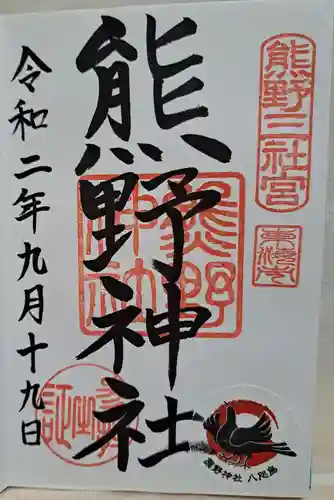 熊野三社宮
東海市
熊野神社
令和二年九月十九日
熊野神社
熊野神社 八咫烏